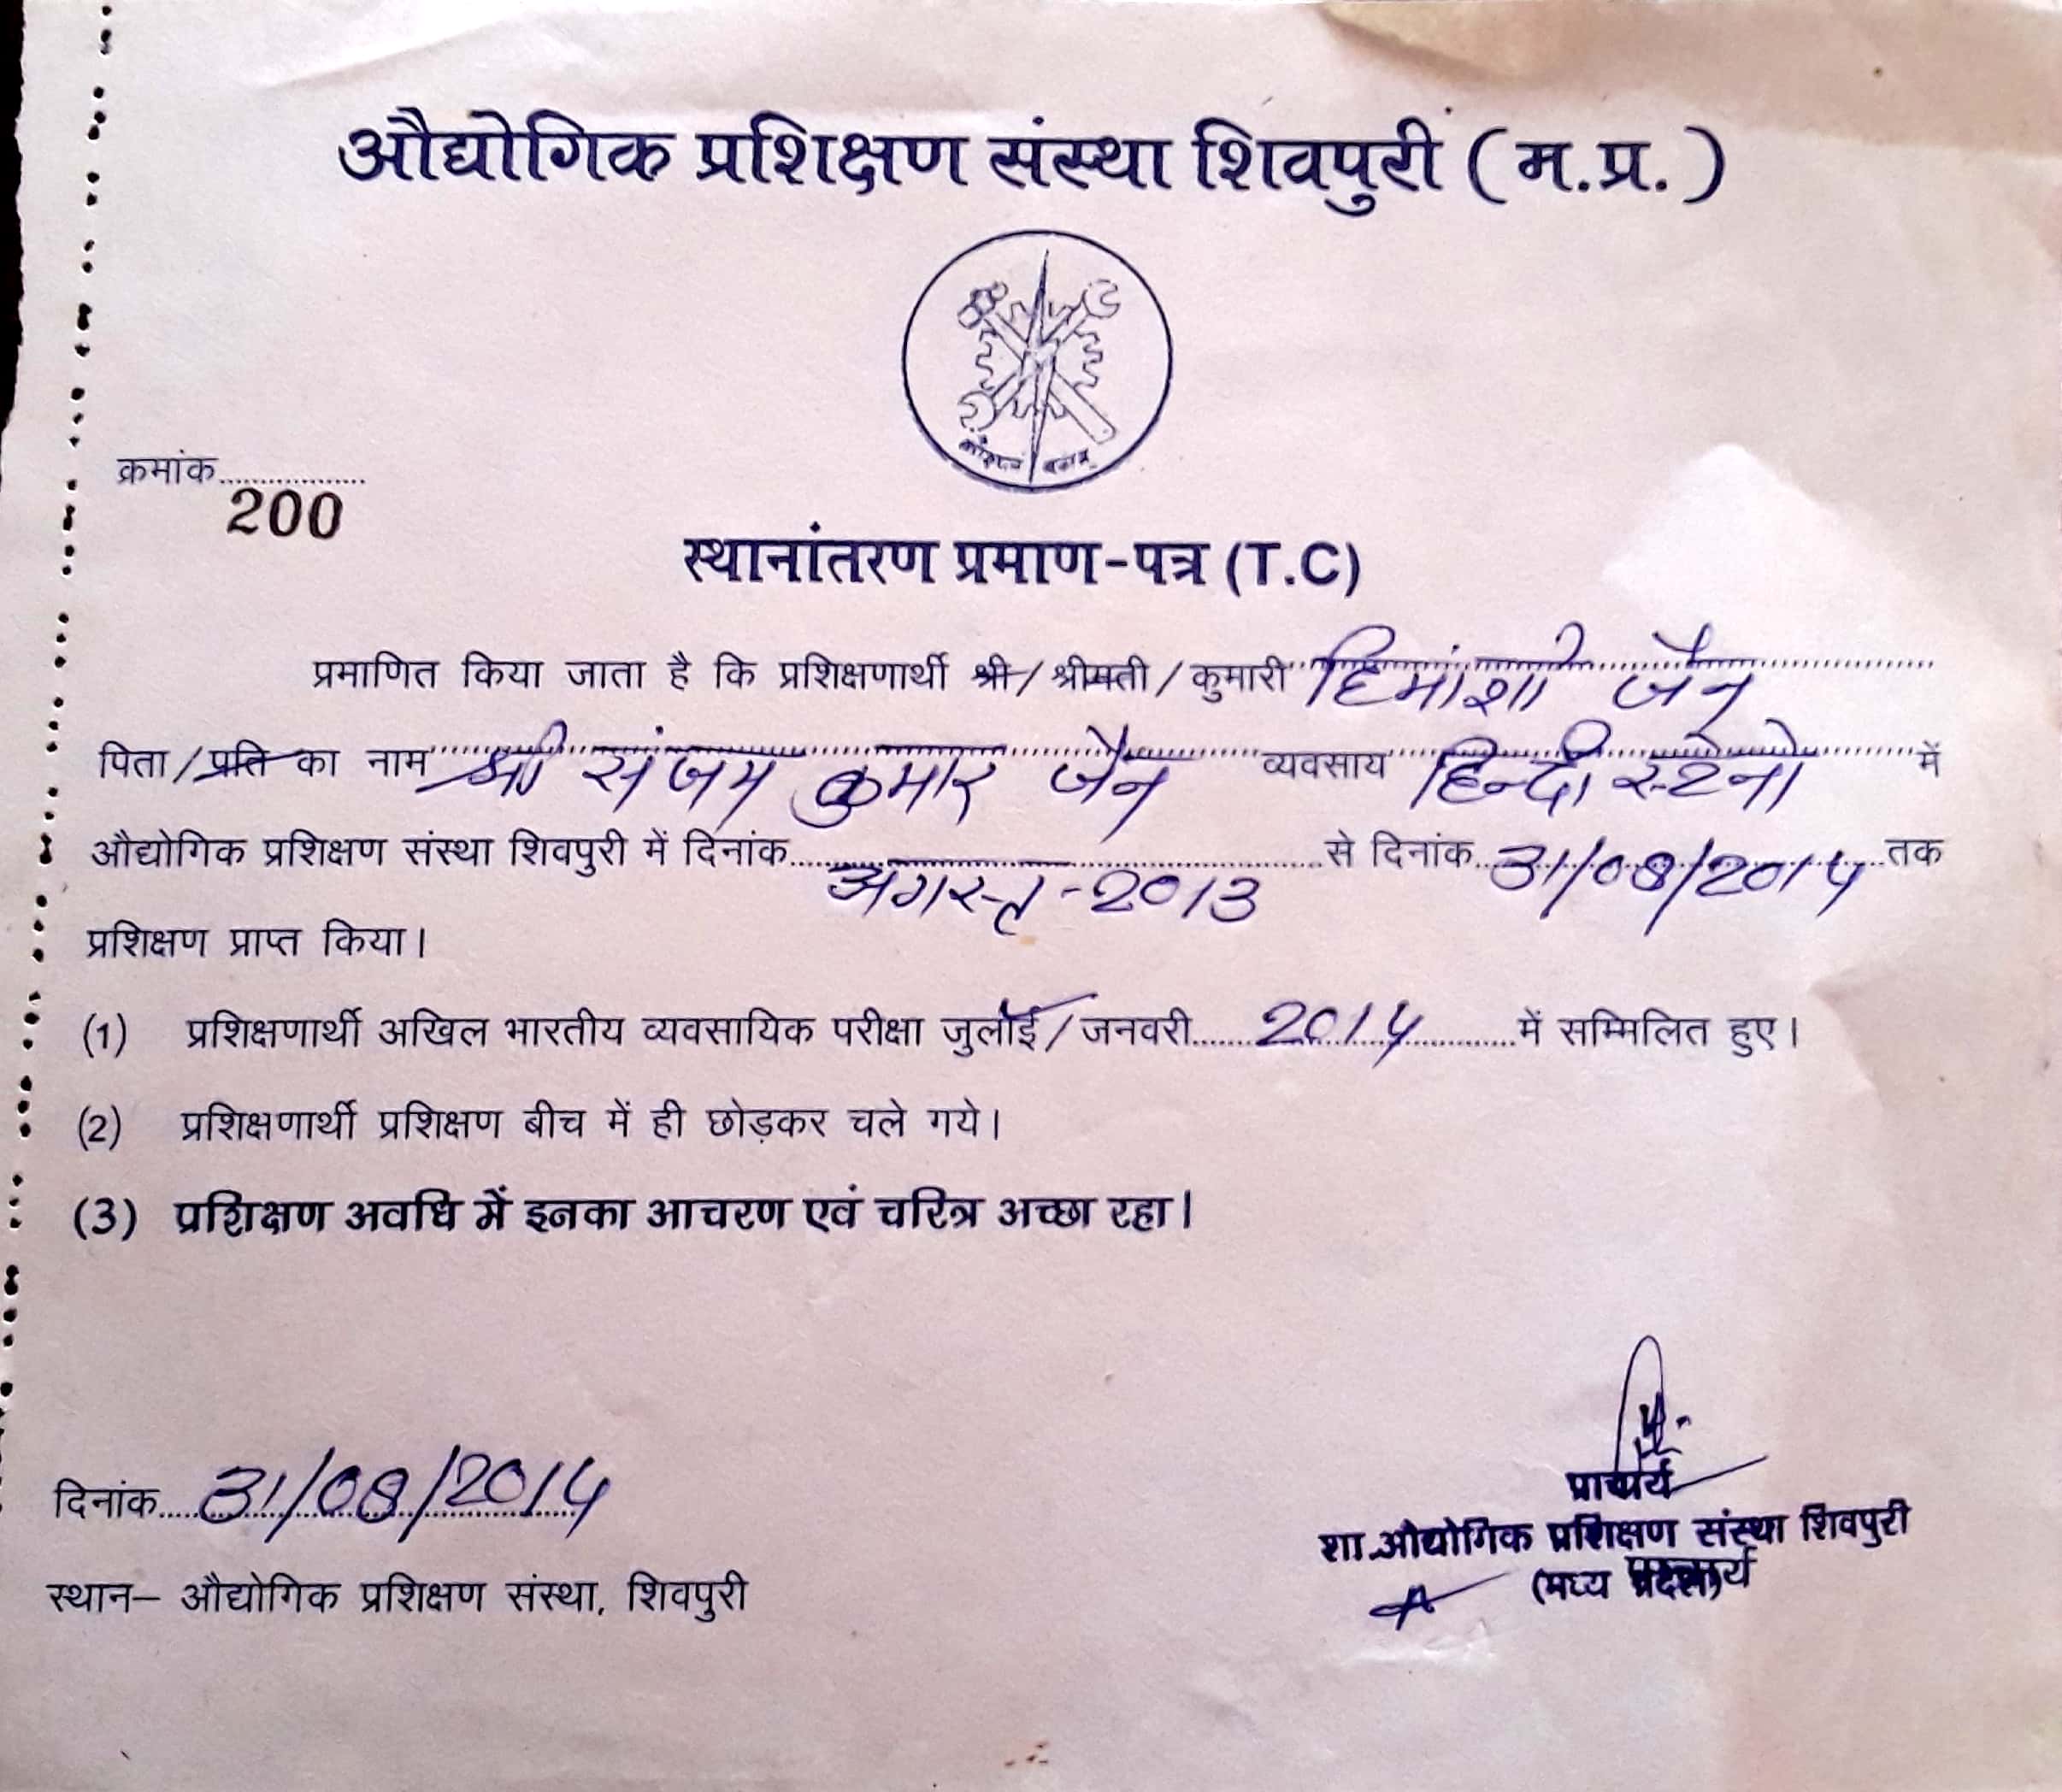 औद्योगिक प्रशिक्षण संस्था शिवपुरी ( म.प्र. )
कौशलं बलम्
क्रमांक..................
200
स्थानांतरण प्रमाण-पत्र (T.C)
प्रमाणित किया जाता है कि प्रशिक्षणार्थी श्री / श्रीमती / कुमारी हिमांशी जैन
पिता / प्रति का नाम श्री संजय कुमार जैन व्यवसाय हिन्दी स्टेनो में
औद्योगिक प्रशिक्षण संस्था शिवपुरी में दिनांक अगस्त - 2013 से दिनांक 31/08/2014 तक
प्रशिक्षण प्राप्त किया।
(1) प्रशिक्षणार्थी अखिल भारतीय व्यवसायिक परीक्षा जुलाई / जनवरी 2014 में सम्मिलित हुए।
(2) प्रशिक्षणार्थी प्रशिक्षण बीच में ही छोड़कर चले गये।
(3) प्रशिक्षण अवधि में इनका आचरण एवं चरित्र अच्छा रहा।
दिनांक 31/08/2014
प्राचार्य
शा. औद्योगिक प्रशिक्षण संस्था शिवपुरी
(मध्य प्रदेश)
प्राचार्य
स्थान– औद्योगिक प्रशिक्षण संस्था, शिवपुरी